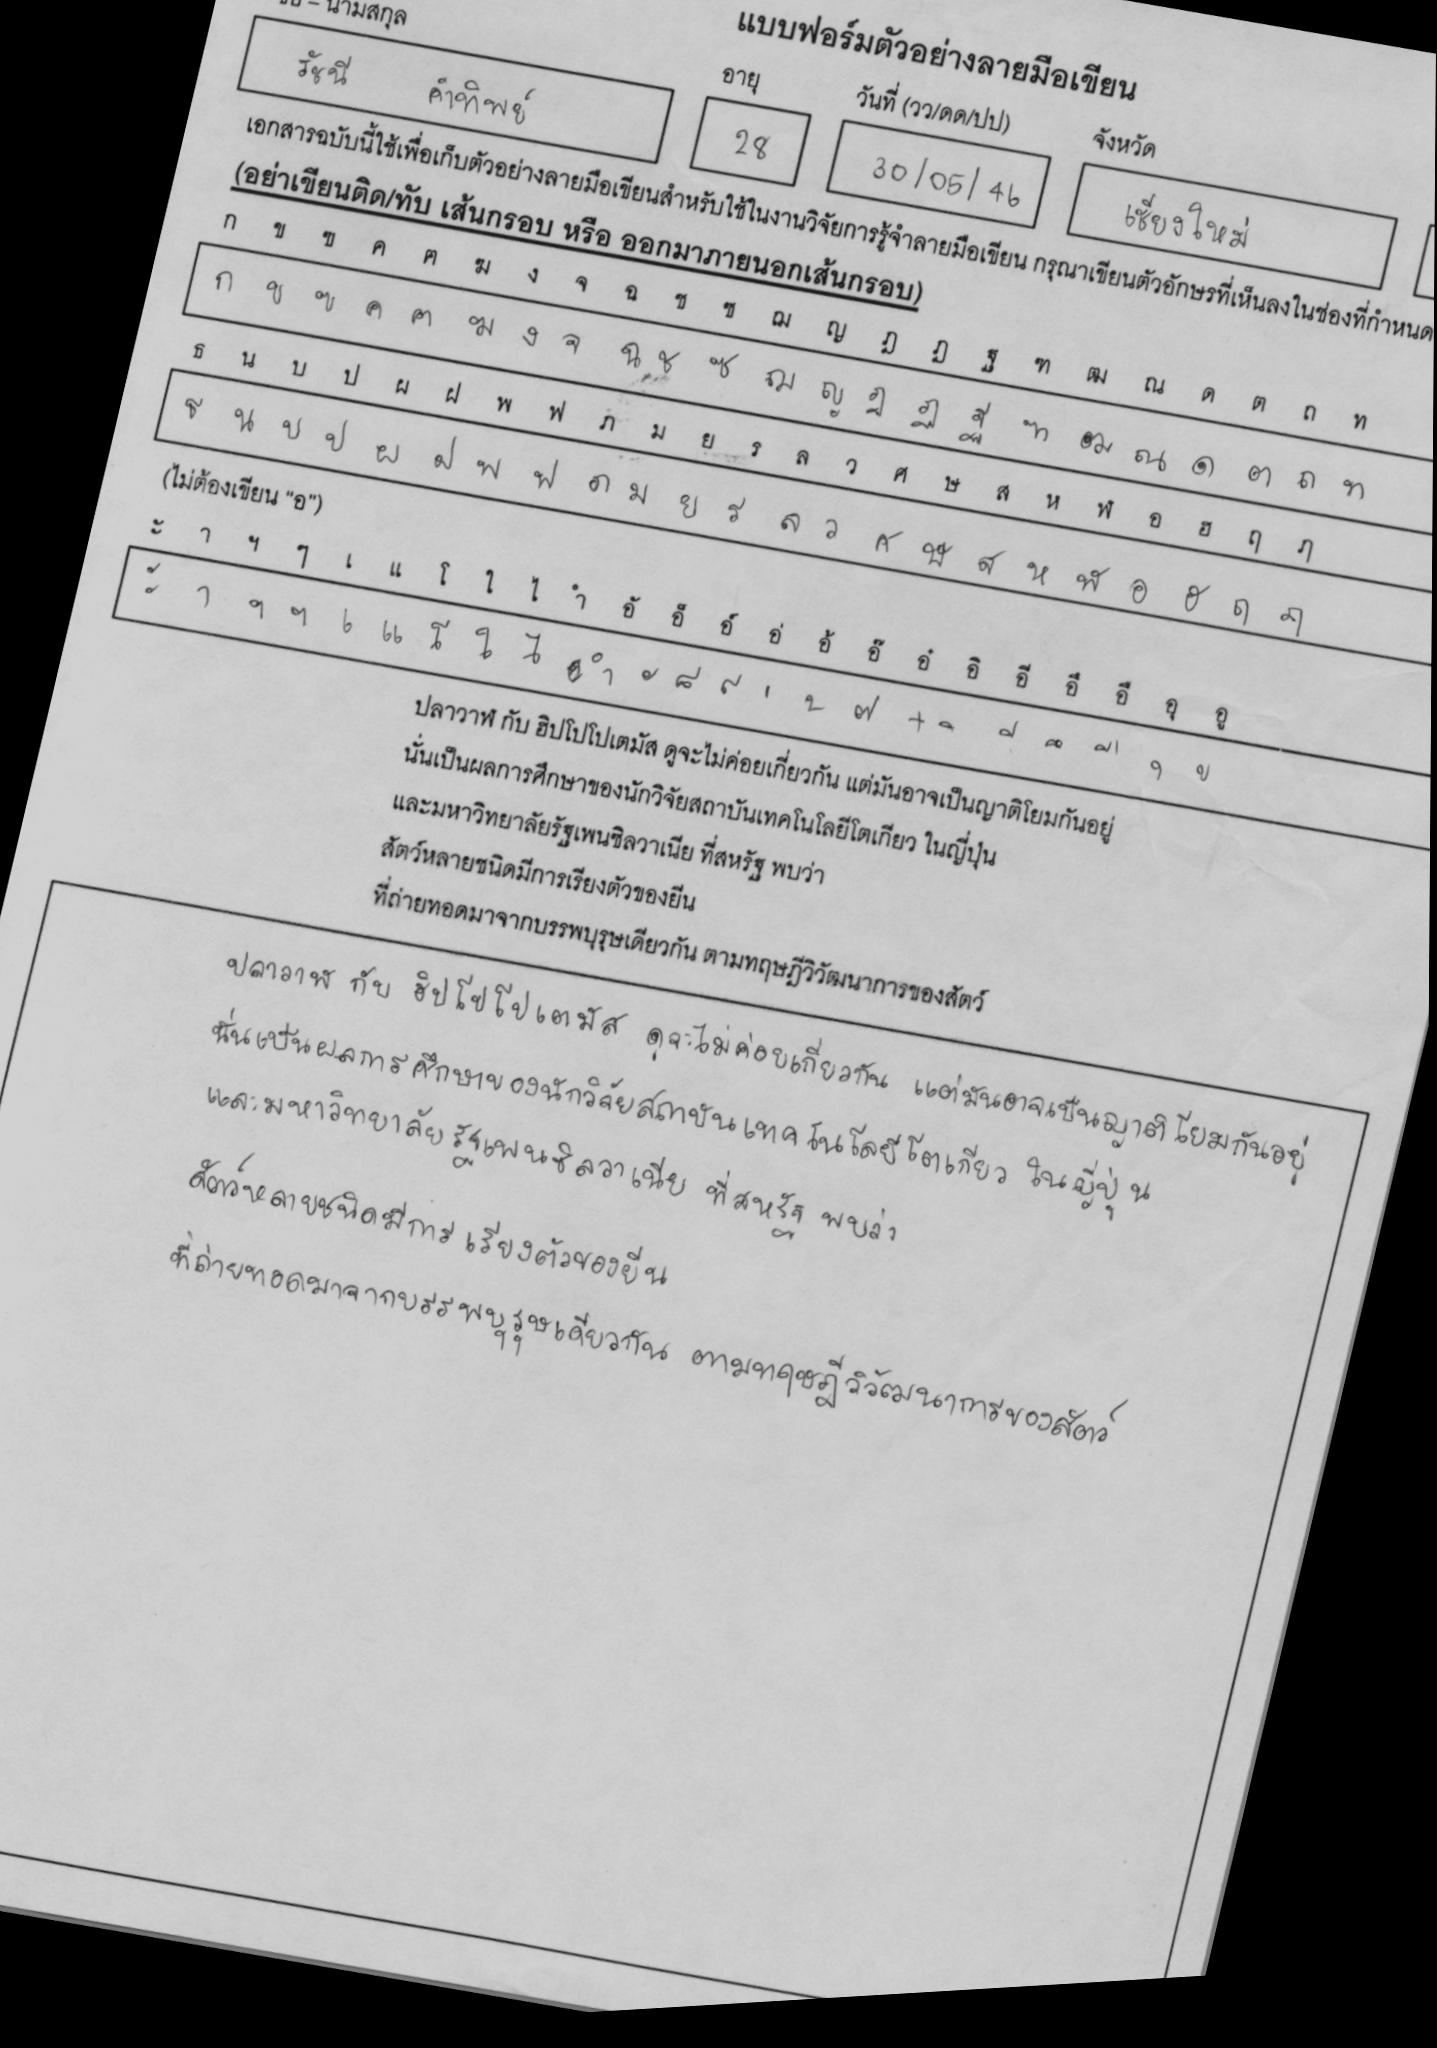 แบบฟอร์มตัวอย่างลายมือเขียน
ชื่อ – นามสกุล อายุ วันที่ (วว/ดด/ปป) จังหวัด
รัชนี คำทิพย์ 28 30/05/46 เชียงใหม่
เอกสารฉบับนี้ใช้เพื่อเก็บตัวอย่างลายมือเขียนสำหรับใช้ในงานวิจัยการรู้จำลายมือเขียน กรุณาเขียนตัวอักษรที่เห็นลงในช่องที่กำหนด
(อย่าเขียนติด/ทับ เส้นกรอบ หรือ ออกมาภายนอกเส้นกรอบ)
ก ข ฃ ค ฅ ฆ ง จ ฉ ช ซ ฌ ญ ฎ ฏ ฐ ฑ ฒ ณ ด ต ถ ท
ก ข ฃ ค ฅ ฆ ง จ ฉ ช ซ ฌ ญ ฎ ฏ ฐ ฑ ฒ ณ ด ต ถ ท
ธ น บ ป ผ ฝ พ ฟ ภ ม ย ร ล ว ศ ษ ส ห ฬ อ ฮ ฤ ฦ
ธ น บ ป ผ ฝ พ ฟ ภ ม ย ร ล ว ศ ษ ส ห ฬ อ ฮ ฤ ฦ
(ไม่ต้องเขียน "อ")
ะ า ฯ ๆ เ แ โ ใ ไ ำ อั อ็ อ์ อ่ อ้ อ๊ อ๋ อิ อี อึ อื อุ อู
ะ า ฯ ๆ เ แ โ ใ ไ ำ ั ็ ์ ่ ้ ๊ ๋ ิ ี ึ ื ุ ู
ปลาวาฬ กับ ฮิปโปโปเตมัส ดูจะไม่ค่อยเกี่ยวกัน แต่มันอาจเป็นญาติโยมกันอยู่
นั่นเป็นผลการศึกษาของนักวิจัยสถาบันเทคโนโลยีโตเกียว ในญี่ปุ่น
และมหาวิทยาลัยรัฐเพนซิลวาเนีย ที่สหรัฐ พบว่า
สัตว์หลายชนิดมีการเรียงตัวของยีน
ที่ถ่ายทอดมาจากบรรพบุรุษเดียวกัน ตามทฤษฎีวิวัฒนาการของสัตว์
ปลาวาฬ กับ ฮิปโปโปเตมัส ดูจะไม่ค่อยเกี่ยวกัน แต่มันอาจเป็นญาติโยมกันอยู่
นั่นเป็นผลการศึกษาของนักวิจัยสถาบันเทคโนโลยีโตเกียว ในญี่ปุ่น
และมหาวิทยาลัยรัฐเพนซิลวาเนีย ที่สหรัฐ พบว่า
สัตว์หลายชนิดมีการเรียงตัวของยีน
ที่ถ่ายทอดมาจากบรรพบุรุษเดียวกัน ตามทฤษฎีวิวัฒนาการของสัตว์